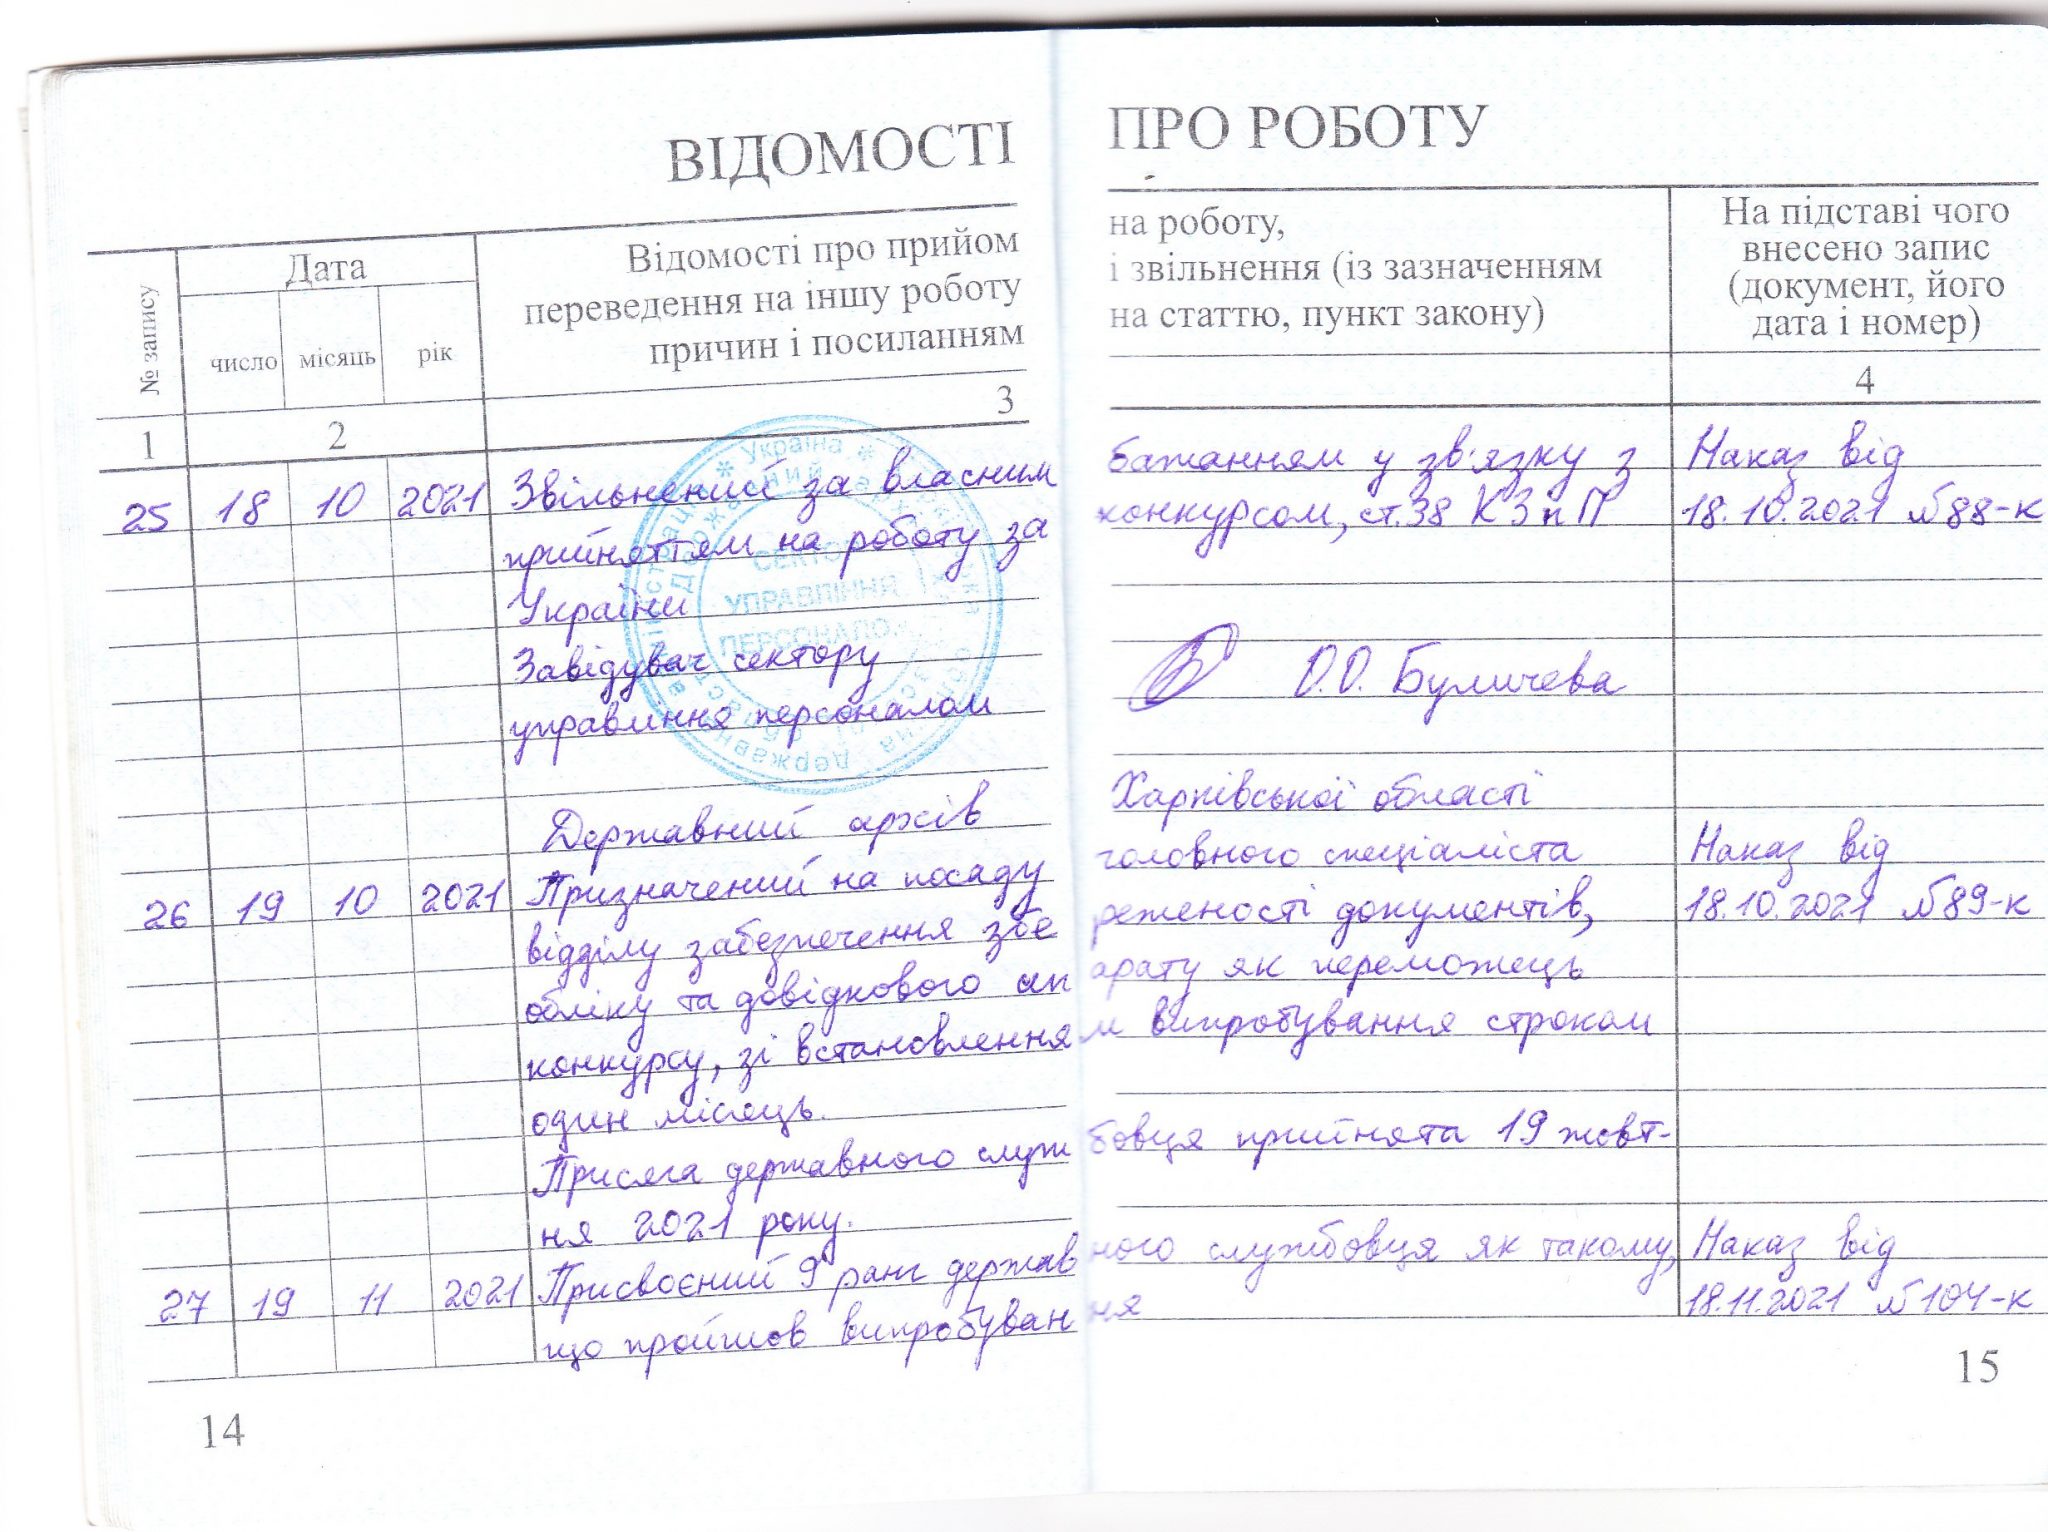 ВІДОМОСТІ ПРО РОБОТУ
№ запису
Дата
число місяць рік
Відомості про прийом на роботу,
переведення на іншу роботу і звільнення (із зазначенням
причин і посиланням на статтю, пункт закону)
На підставі чого
внесено запис
(документ, його
дата і номер)
1 2 3 4
25 18 10 2021 Звільнений за власним бажанням у зв'язку з Наказ від
прийняттям на роботу за конкурсом, ст.38 КЗпП 18.10.2021 №88-к
України
Завідувач сектору О.О. Буличева
управління персоналом
Державний архів Харківської області
26 19 10 2021 Призначений на посаду головного спеціаліста Наказ від
відділу забезпечення збе реженості документів, 18.10.2021 №89-к
обліку та довідкового ап арату як переможець
конкурсу, зі встановлення м випробування строком
один місяць.
Присяга державного служ бовця прийнята 19 жовт-
ня 2021 року.
27 19 11 2021 Присвоєний 9 ранг держав ного службовця як такому, Наказ від
що пройшов випробуван ня 18.11.2021 №104-к
Україна
СЕКТО
УПРАВЛІННЯ
ПЕРСОНАЛО
14
15